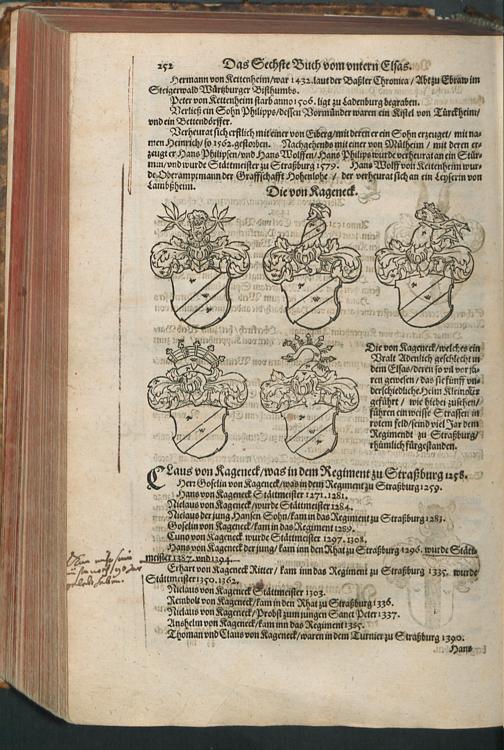 252 Das Sechste Buch vom vntern Elsas.
Hermann von Kettenheim/war 1432. laut der Baßler Chronica / Abt zu Ebraw im
Steigerwald Würtzburger Bisthumbs.
Peter von Kettenheim starb anno 1506. ligt zu Ladenburg begraben.
Verließ ein Sohn Philipps/dessen Vormünder waren ein Kistel von Türckheim/
vnd ein Bettendörffer.
Verheurat sich erstlich mit einer von Eiberg/mit deren er ein Sohn erzeuget/ mit na-
men Heinrich/ so 1562. gestorben. Nachgehends mit einer von Mülheim / mit deren er-
zeugt er Hans Philipsen/vnd Hans Wolffen/Hans Philips wurde verheurat an ein Stür-
min/vnd wurde Stättmeister zu Straßburg 1579. Hans Wolff von Kettenheim wur-
de Oberamptmann der Graffschafft Hohenlohe / der verheurat sich an ein Leyserin von
Lambsheim.
Die von Kageneck.
Die von Kageneck/welches ein
Vralt Adenlich geschlecht in
dem Elsas/deren so vil vor ja-
ren gewesen/das sie fünff vn-
derschiedliche Helm Kleinoter
geführt / wie hiebei zusehen/
führen ein weisse Strassen in
rotem feld/seind viel Jar dem
Regimendt zu Straßburg/
rhümlich fürgestanden.
Claus von Kageneck/was in dem Regiment zu Straßburg 1258.
Herr Goselin von Kageneck/was in dem Regiment zu Straßburg 1259.
Hans von Kageneck Stättmeister 1271. 1281.
Niclaus von Kageneck/wurde Stättmeister 1284.
Niclaus der jung Hansen Sohn/kam in das Regiment zu Straßburg 1283.
Goselin von Kageneck/kam in das Regiment 1289.
Cuno von Kageneck wurde Stättmeister 1297. 1308.
Hans von Kageneck der jung/ kam inn den Rhat zu Straßburg 1296. wurde Stätt-
meister 1387. vnd 1394.
Erhart von Kageneck Ritter/ kam inn das Regiment zu Straßburg 1335. wurde
Stättmeister 1350. 1362.
Niclaus von Kageneck Stättmeister 1303.
Reinbolt von Kageneck/kam in den Rhat zu Straßburg 1336.
Niclaus von Kageneck/Probst zum jungen Sanct Peter 1337.
Anshelm von Kageneck/kam inn das Regiment 1385.
Thoman vnd Claus von Kageneck/waren in dem Turnier zu Straßburg 1390.
Hans